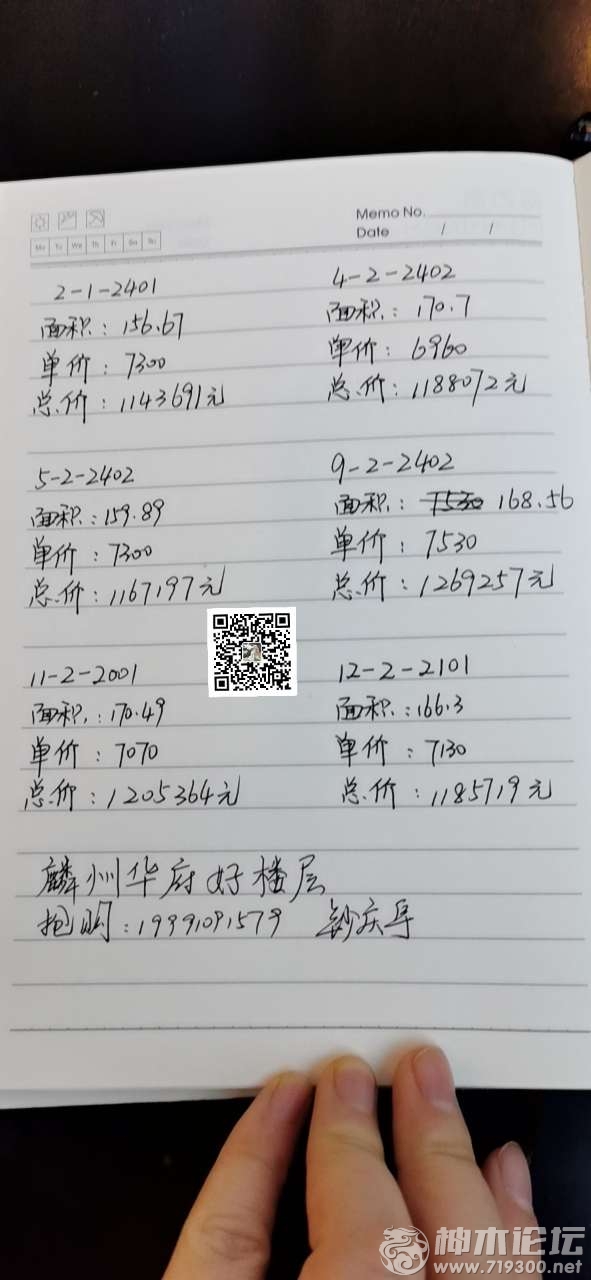 Memo No.
Date / /
Mo Tu We Th Fr Sa Su
2-1-2401
面积：156.67
单价：7300
总价：1143691元
4-2-2402
面积：170.7
单价：6960
总价：1188072元
5-2-2402
面积：159.89
单价：7300
总价：1167197元
9-2-2402
面积：7530 168.56
单价：7530
总价：1269257元
11-2-2001
面积：170.49
单价：7070
总价：1205364元
12-2-2101
面积：166.3
单价：7130
总价：1185719元
麟州华府好楼层
抢购：19991091579
神木论坛
www.719300.net